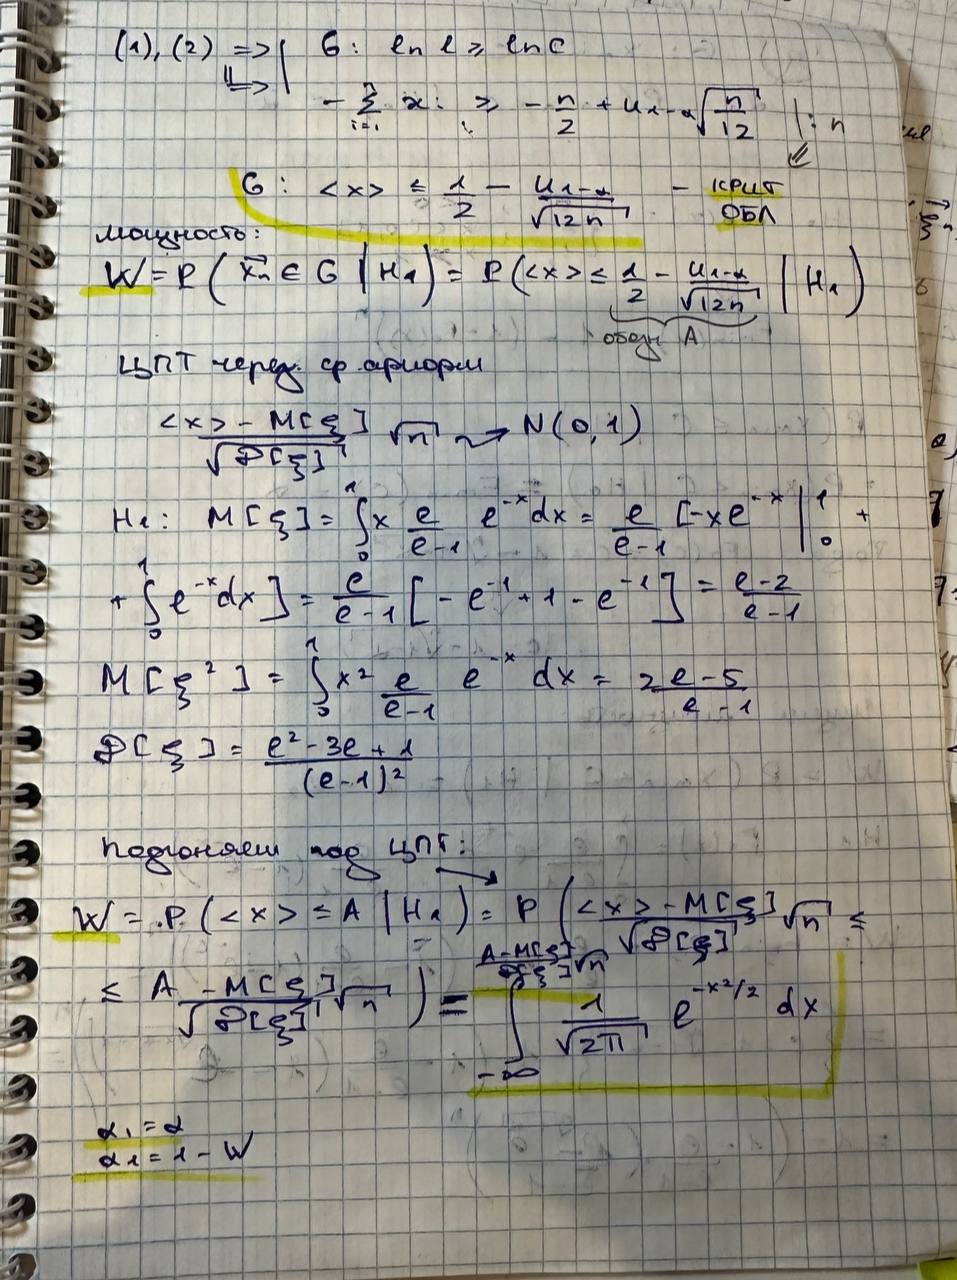 (1), (2) => | G: ln l ≥ ln C
=> - Σ_{i=1}^{n} x_i ≥ - n/2 + u_{1-α} √(n/12) | : n
G: <x> ≤ 1/2 - u_{1-α}/√(12n) - крит обл
мощность:
W = P(x⃗_n ∈ G | H_1) = P(<x> ≤ 1/2 - u_{1-α}/√(12n) | H_1)
обозн A
ЦПТ через ср. арифм
(<x> - M[ξ])/√(D[ξ]) √n ⇝ N(0,1)
H_1: M[ξ] = ∫_0^1 x e/(e-1) e^{-x} dx = e/(e-1) [-xe^{-x} |_0^1 +
+ ∫_0^1 e^{-x} dx] = e/(e-1) [-e^{-1} + 1 - e^{-1}] = (e-2)/(e-1)
M[ξ²] = ∫_0^1 x² e/(e-1) e^{-x} dx = (2e-5)/(e-1)
D[ξ] = (e² - 3e + 1)/(e-1)²
Подгоняем под ЦПТ:
W = P(<x> ≤ A | H_1) = P((<x> - M[ξ])/√(D[ξ]) √n ≤
≤ (A - M[ξ])/√(D[ξ]) √n) = ∫_{-∞}^{(A-M[ξ])/D[ξ] √n} 1/√(2π) e^{-x²/2} dx
α_1 = α
α_2 = 1 - W